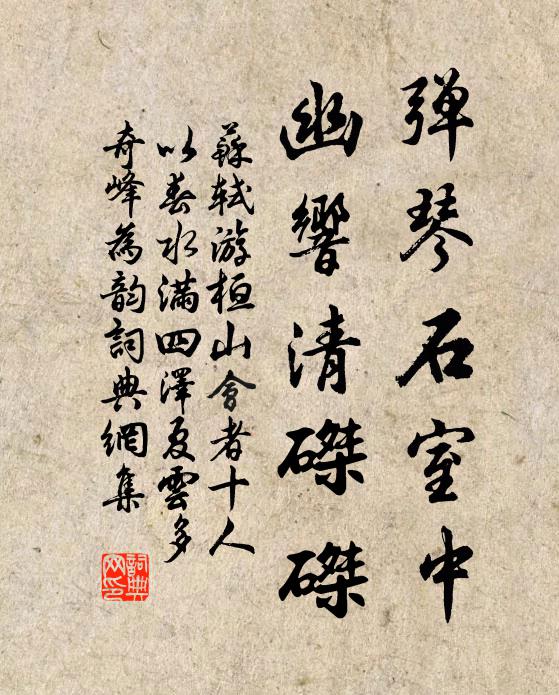 彈琴石室中
幽響清磔磔
蘇軾游桓山會者十人
以春水滿四澤夏雲多
奇峰為韵詞典網集
詞典
网印